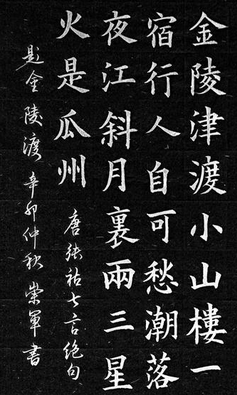 金陵津渡小山樓一
宿行人自可愁潮落
夜江斜月裏兩三星
火是瓜州
唐张祜七言绝句
題金陵渡辛卯仲秋崇軍書